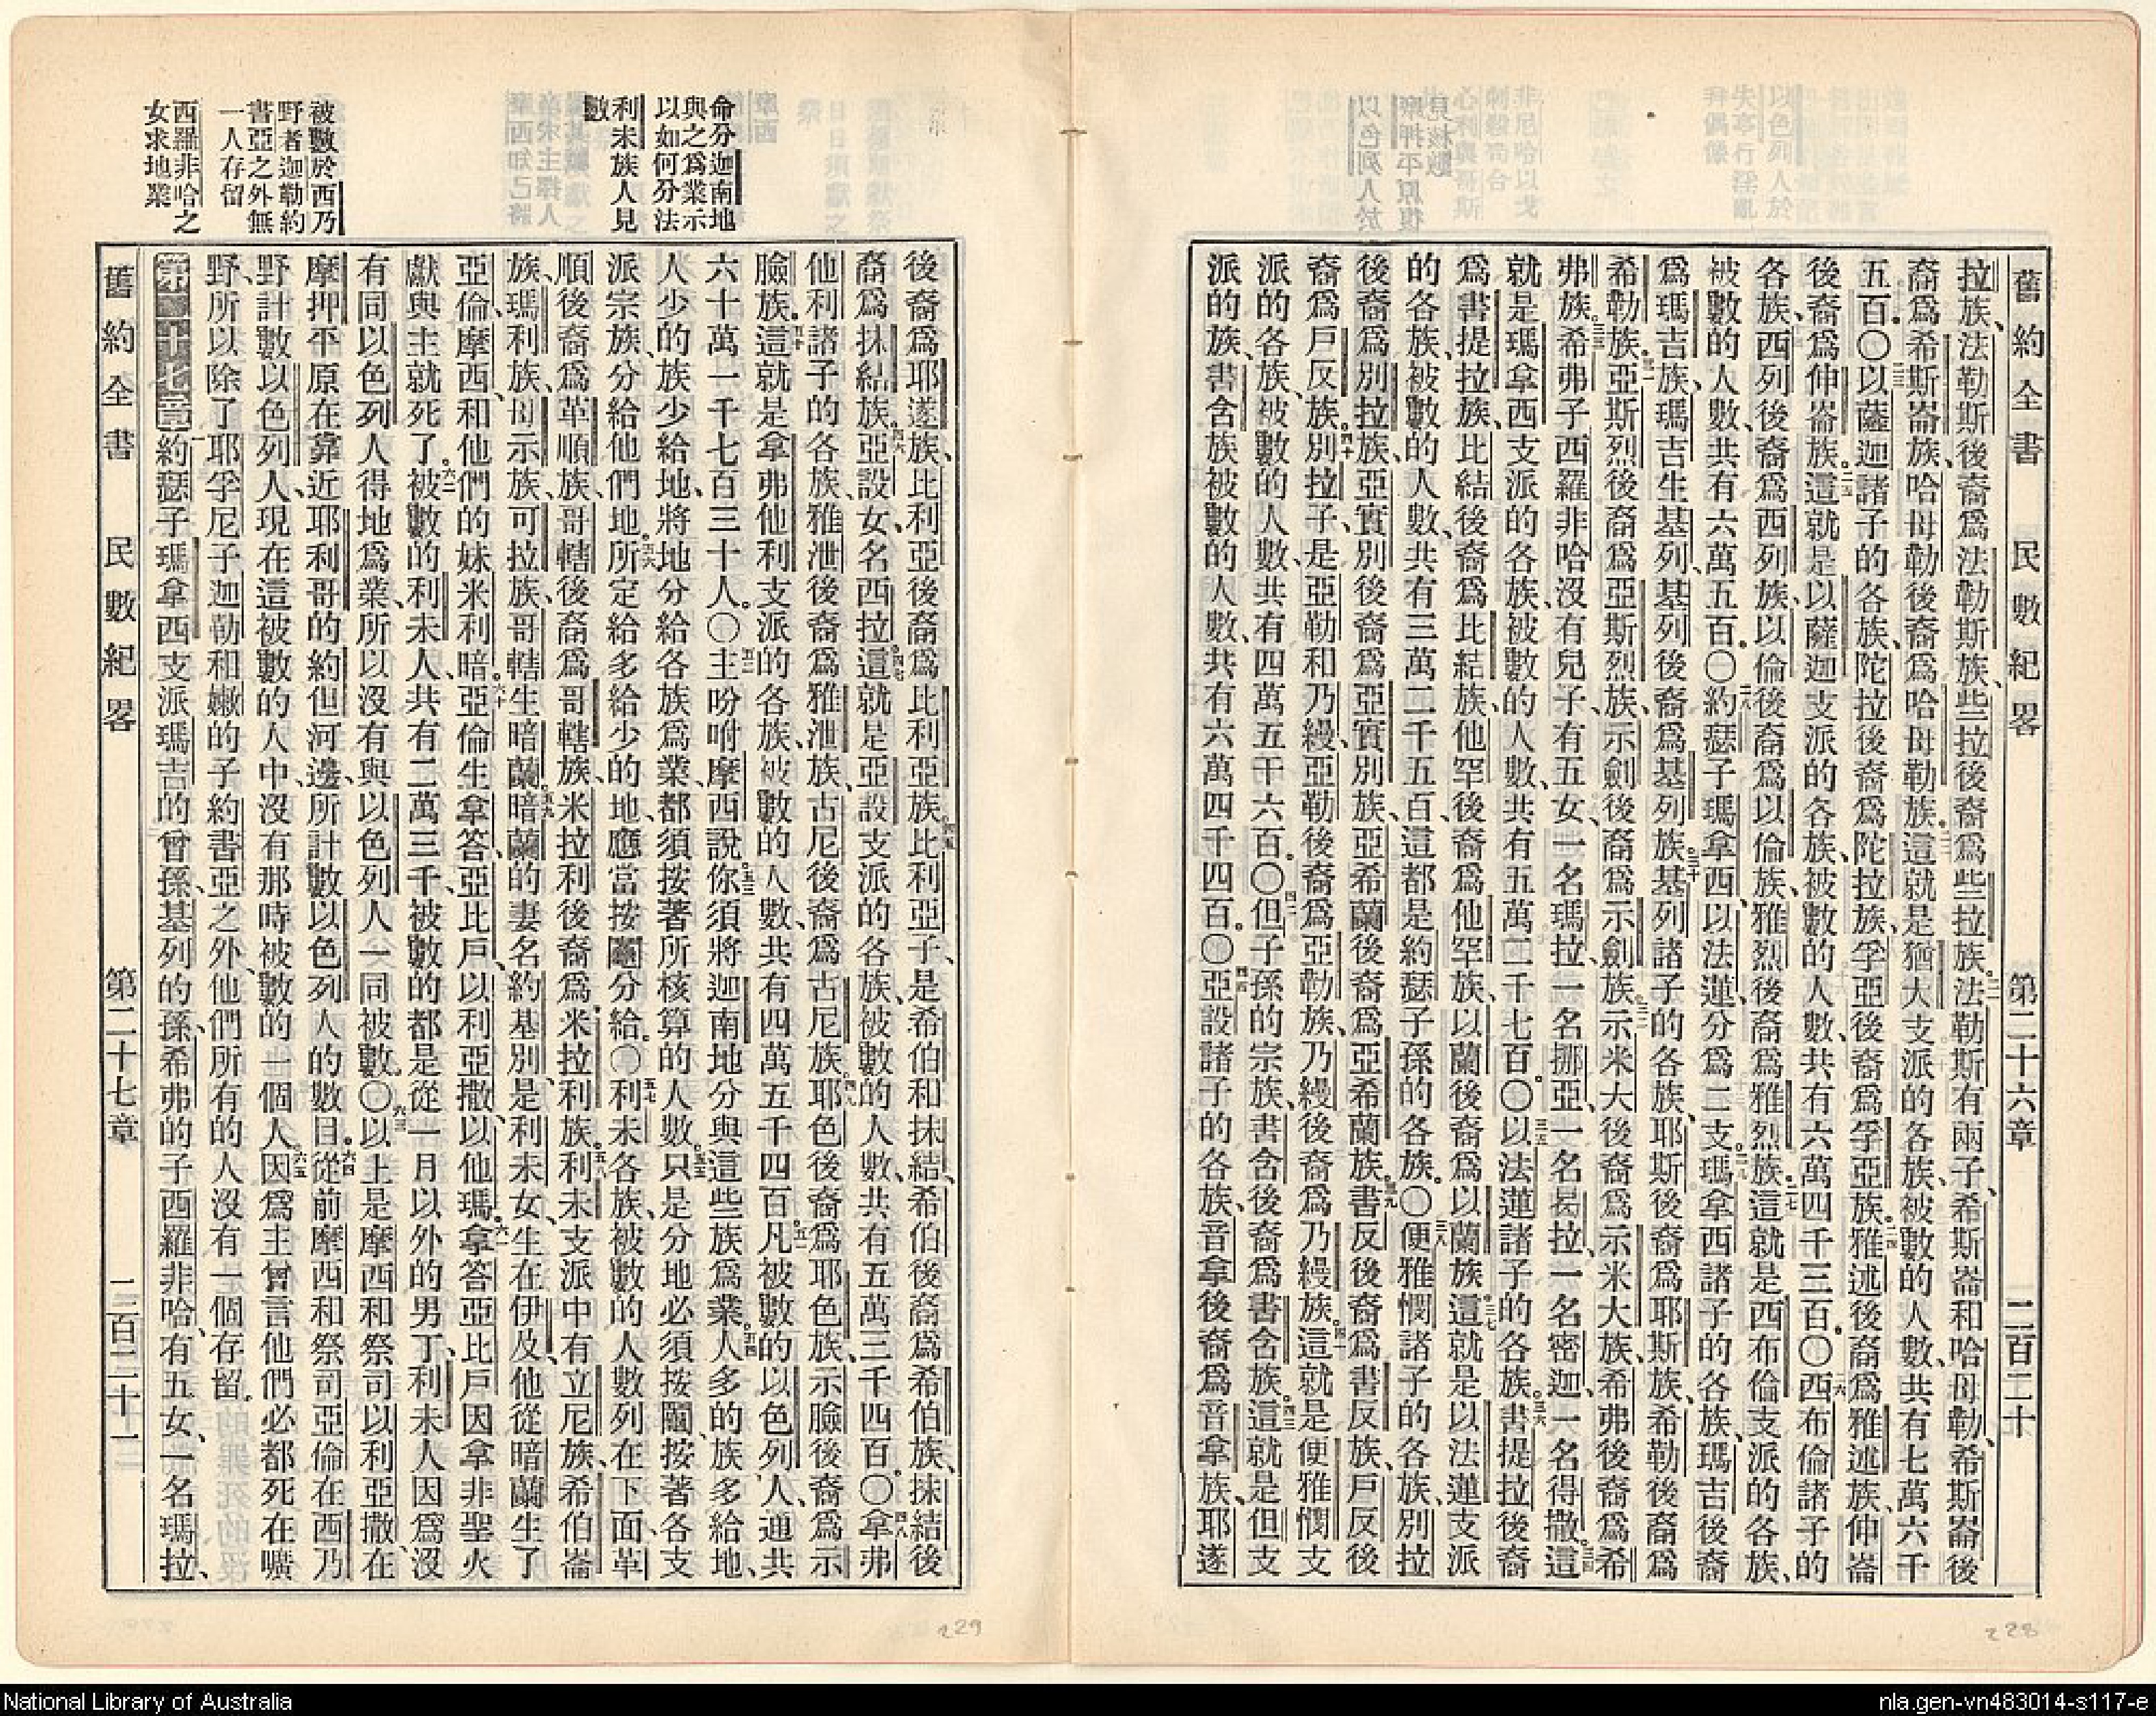 舊約全書 民數紀畧 第二十六章 二百二十
拉族、法勒斯後裔爲法勒斯族、些拉後裔爲些拉族。二一法勒斯有兩子、希斯崙和哈母勒、希斯崙後
裔爲希斯崙族、哈母勒後裔爲哈母勒族。二二這就是猶大支派的各族、被數的人數、共有七萬六千
五百。〇二三以薩迦諸子的各族、陀拉後裔爲陀拉族、孚亞後裔爲孚亞族。二四雅述後裔爲雅述族、伸崙
後裔爲伸崙族。二五這就是以薩迦支派的各族、被數的人數、共有六萬四千三百。〇二六西布倫諸子的
各族、西列後裔爲西列族、以倫後裔爲以倫族、雅烈後裔爲雅烈族。二七這就是西布倫支派的各族、
被數的人數、共有六萬五百。〇二八約瑟子瑪拿西、以法蓮、分爲二支。二九瑪拿西諸子的各族、瑪吉後裔
爲瑪吉族、瑪吉生基列、基列後裔爲基列族。三十基列諸子的各族、耶斯後裔爲耶斯族、希勒後裔爲
希勒族。三一亞斯烈後裔爲亞斯烈族、示劍後裔爲示劍族。三二示米大後裔爲示米大族、希弗後裔爲希
弗族。三三希弗子西羅非哈沒有兒子、有五女、一名瑪拉、一名挪亞、一名曷拉、一名密迦、一名得撒。三四這
就是瑪拿西支派的各族、被數的人數、共有五萬二千七百。〇三五以法蓮諸子的各族。三六書提拉後裔
爲書提拉族、比結後裔爲比結族、他罕後裔爲他罕族、以蘭後裔爲以蘭族。三七這就是以法蓮支派
的各族、被數的人數、共有三萬二千五百、這都是約瑟子孫的各族。〇三八便雅憫諸子的各族、別拉
後裔爲別拉族、亞實別後裔爲亞實別族、亞希蘭後裔爲亞希蘭族。三九書反後裔爲書反族、戶反後
裔爲戶反族。四十別拉子、是亞勒和乃縵、亞勒後裔爲亞勒族、乃縵後裔爲乃縵族。四一這就是便雅憫支
派的各族、被數的人數、共有四萬五千六百。〇四二但子孫的宗族、書含後裔爲書含族。四三這就是但支
派的族、書含族被數的人數、共有六萬四千四百。〇四四亞設諸子的各族、音拿後裔爲音拿族、耶遂
後裔爲耶遂族、比利亞後裔爲比利亞族。四五比利亞子、是希伯和抹結、希伯後裔爲希伯族、抹結後
裔爲抹結族。四六亞設女、名西拉。四七這就是亞設支派的各族、被數的人數、共有五萬三千四百。〇四八拿弗
他利諸子的各族、雅泄後裔爲雅泄族、古尼後裔爲古尼族。四九耶色後裔爲耶色族、示臉後裔爲示
臉族。五十這就是拿弗他利支派的各族、被數的人數、共有四萬五千四百。五一凡被數的以色列人、通共
六十萬一千七百三十人。〇五二主吩咐摩西說。五三你須將迦南地分與這些族爲業。五四人多的族多給地、
人少的族少給地、將地分給各族爲業、都須按著所核算的人數。五五只是分地必須按鬮、按著各支
派宗族、分給他們地。五六所定給多給少的地、應當按鬮分給。〇五七利未各族、被數的人數列在下面、革
順後裔爲革順族、哥轄後裔爲哥轄族、米拉利後裔爲米拉利族。五八利未支派中有立尼族、希伯崙
族、瑪利族、母示族、可拉族、哥轄生暗蘭。五九暗蘭的妻名約基別、是利未女、生在伊及、他從暗蘭生了
亞倫、摩西、和他們的妹米利暗。六十亞倫生拿答、亞比戶、以利亞撒、以他瑪。六一拿答亞比戶因拿非聖火
獻與主就死了。六二被數的利未人、共有二萬三千、被數的都是從一月以外的男丁、利未人因爲沒
有同以色列人得地爲業、所以沒有與以色列人一同被數。〇六三以上是摩西和祭司以利亞撒、在
摩押平原在靠近耶利哥的約但河邊、所計數以色列人的數目。六四從前摩西和祭司亞倫在西乃
野計數以色列人、現在這被數的人中、沒有那時被數的一個人。六五因爲主曾言他們必都死在曠
野、所以除了耶孚尼子迦勒和嫩的子約書亞之外、他們所有的人沒有一個存留。
第二十七章 一約瑟子瑪拿西支派瑪吉的曾孫、基列的孫、希弗的子西羅非哈、有五女、一名瑪拉、
舊約全書 民數紀畧 第二十七章 二百二十一
命分迦南地
與之爲業示
以如何分法
利未族人見
數
被數於西乃
野者迦勒約
書亞之外無
一人存留
西羅非哈之
女求地業
228
229
National Library of Australia
nla.gen-vn483014-s117-e